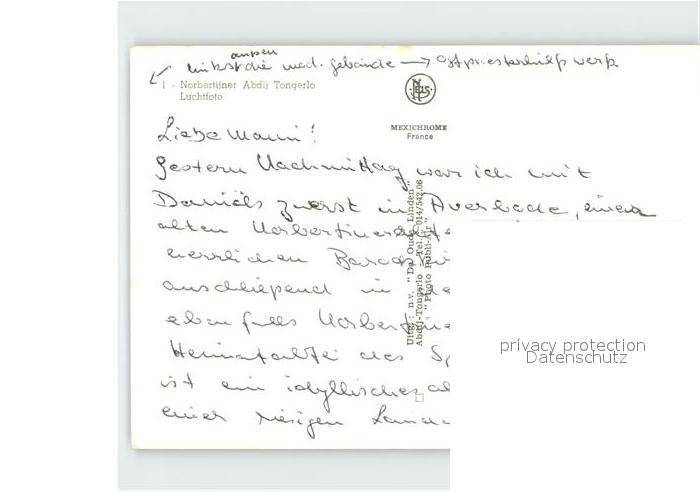 außen
links die med. gebäude → Ostpriesterhilfswerk
1 - Norbertijner Abdij Tongerlo
Luchtfoto
NELS
MEXICHROME
France
Liebe Mami!
gestern Nachmittag war ich mit
Daniëls zuerst in Averbode, einer
alten Norbertiner
herrlichen Barock
anschließend in
ebenfalls Norbertine
Heimstätte des Sp
ist ein idyllisches al
einer riesigen
Uitg.: n.v. "De Oude Linden"
Abdij-Tongerlo - Tel. 014/542.06
"Photo Publi-Air"
privacy protection
Datenschutz